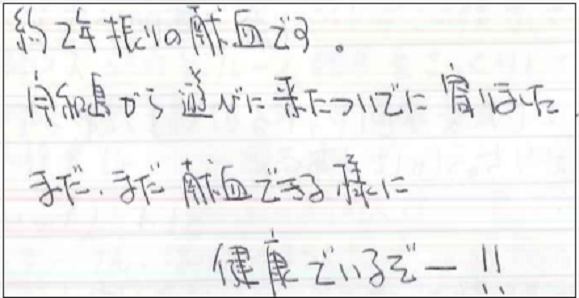 約2年振りの献血です。
宇和島から遊びに来たついでに寄りました
まだ、まだ献血できる様に
健康でいるぞー!!